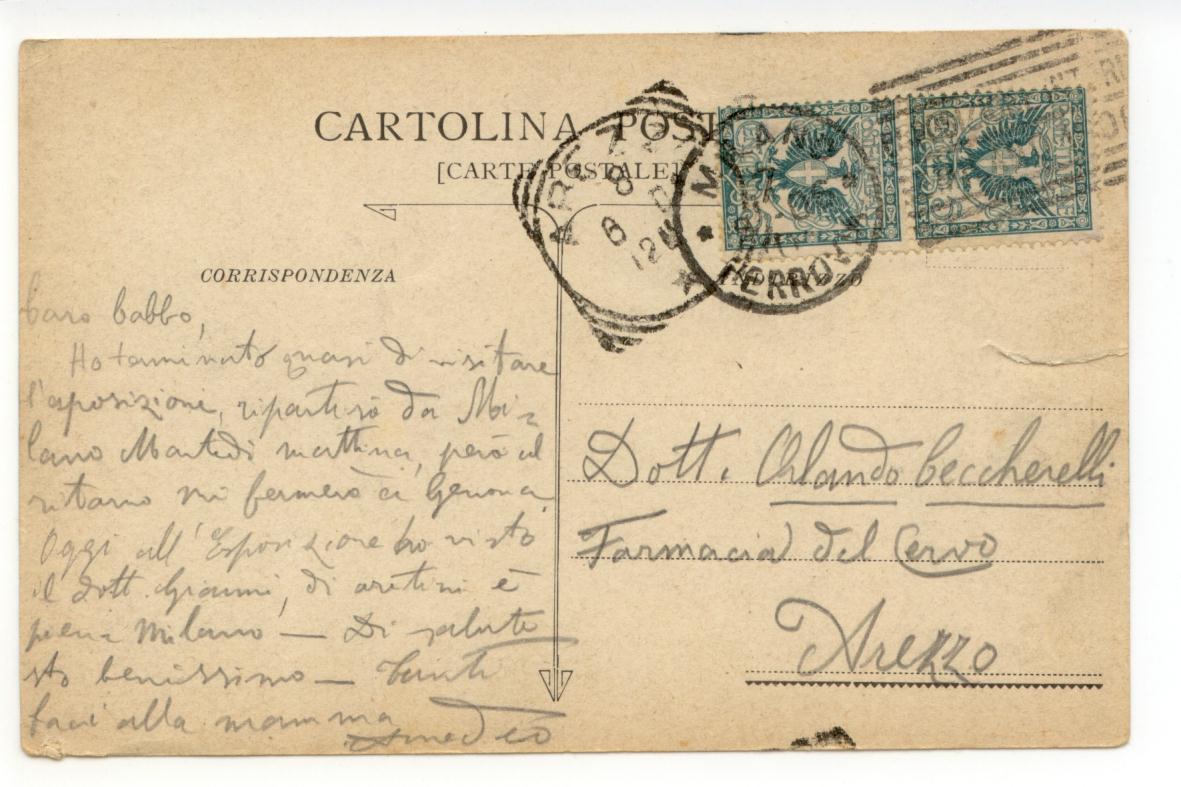 CARTOLINA POST
[CARTE POSTALE]
AREZZO
8
6
12 M
MILANO
FERROVIA
CORRISPONDENZA
INDIRIZZO
Caro babbo,
Ho terminato quasi di visitare
l'esposizione, ripartirò da Mi=
lano Martedì mattina, però al
ritorno mi fermerò a Genova
Oggi all'Esposizione ho visto
il dott. Gianni, di aretini è
piena Milano — Di salute
sto benissimo — Tanti
baci alla mamma
Amedeo
Dott. Orlando Ceccherelli
Farmacia del Cervo
Arezzo